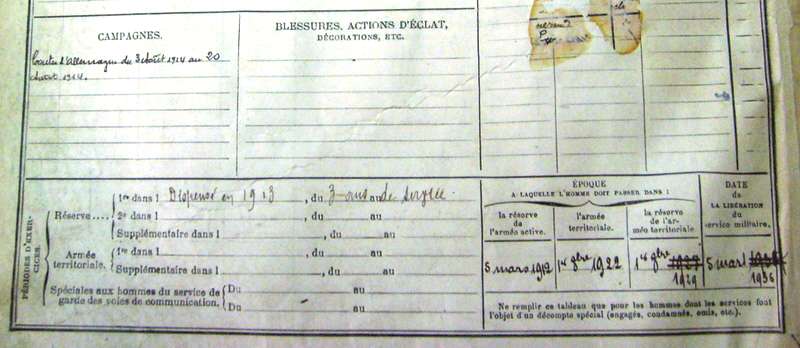 CAMPAGNES.
Contre l'Allemagne du 3 Août 1914 au 20
Août 1914.
BLESSURES, ACTIONS D'ÉCLAT,
DÉCORATIONS, ETC.
PÉRIODES D'EXER-
CICES.
Réserve....
1re dans l Dispensé en 1913, du 3 ans au de service.
2e dans l , du au
Supplémentaire dans l , du au
Armée
territoriale.
1re dans l , du au
Supplémentaire dans l , du au
Spéciales aux hommes du service de
garde des voies de communication.
Du au
Du au
ÉPOQUE
A LAQUELLE L'HOMME DOIT PASSER DANS :
la réserve
de
l'armée active.
l'armée
territoriale.
la réserve
de l'ar-
mée territoriale.
DATE
de
LA LIBÉRATION
du
service militaire.
5 mars 1912
1er 8bre 1922
1er 8bre
1929
5 mars
1936
Ne remplir ce tableau que pour les hommes dont les services font
l'objet d'un décompte spécial (engagés, condamnés, omis, etc.).